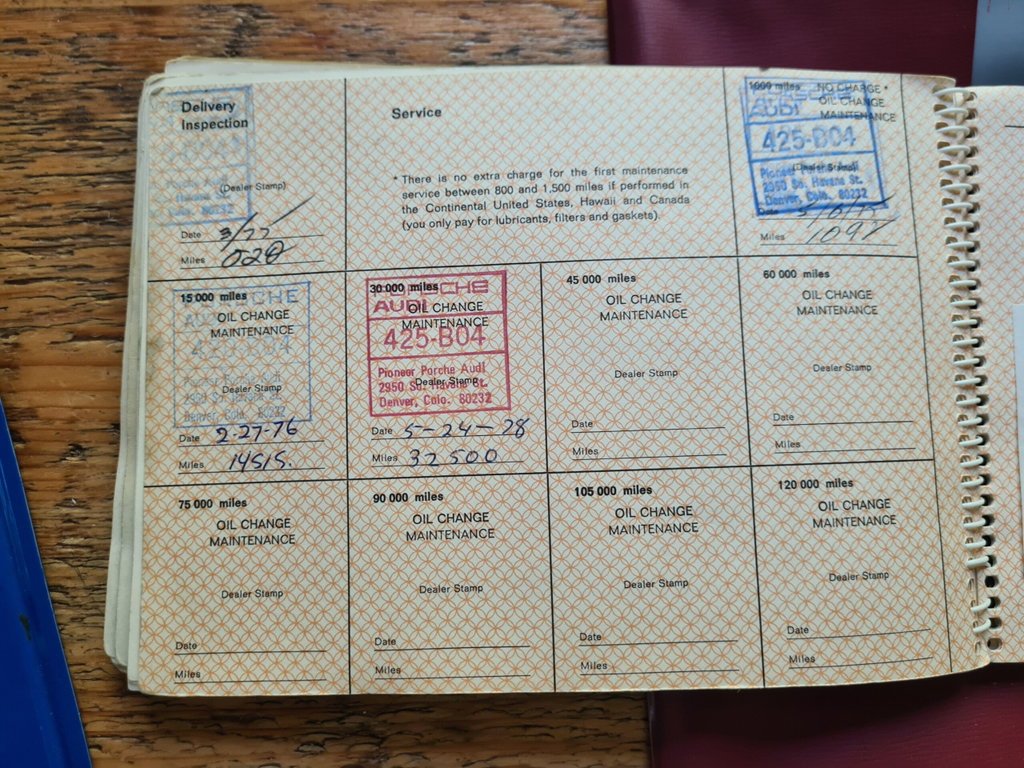 Delivery
Inspection
(Dealer Stamp)
Colo. 80232
Date 3/77
Miles 020
Service
* There is no extra charge for the first maintenance
service between 800 and 1,500 miles if performed in
the Continental United States, Hawaii and Canada
(you only pay for lubricants, filters and gaskets).
1000 miles NO CHARGE *
OIL CHANGE
MAINTENANCE
AUDI
425-B04
(Dealer Stamp)
Pioneer
2950 So. Havana St.
Denver, Colo. 80232
Date
Miles 1097
15 000 miles
OIL CHANGE
MAINTENANCE
Dealer Stamp
Denver, Colo. 80232
Date 2-27-76
Miles 14515.
30 000 miles
PORSCHE
AUDI
OIL CHANGE
MAINTENANCE
425-B04
Pioneer Porche Audi
Dealer Stamp
2950 So. Havana St.
Denver, Colo. 80232
Date 5-24-78
Miles 32500
45 000 miles
OIL CHANGE
MAINTENANCE
Dealer Stamp
Date
Miles
60 000 miles
OIL CHANGE
MAINTENANCE
Dealer Stamp
Date
Miles
75 000 miles
OIL CHANGE
MAINTENANCE
Dealer Stamp
Date
Miles
90 000 miles
OIL CHANGE
MAINTENANCE
Dealer Stamp
Date
Miles
105 000 miles
OIL CHANGE
MAINTENANCE
Dealer Stamp
Date
Miles
120 000 miles
OIL CHANGE
MAINTENANCE
Dealer Stamp
Date
Miles